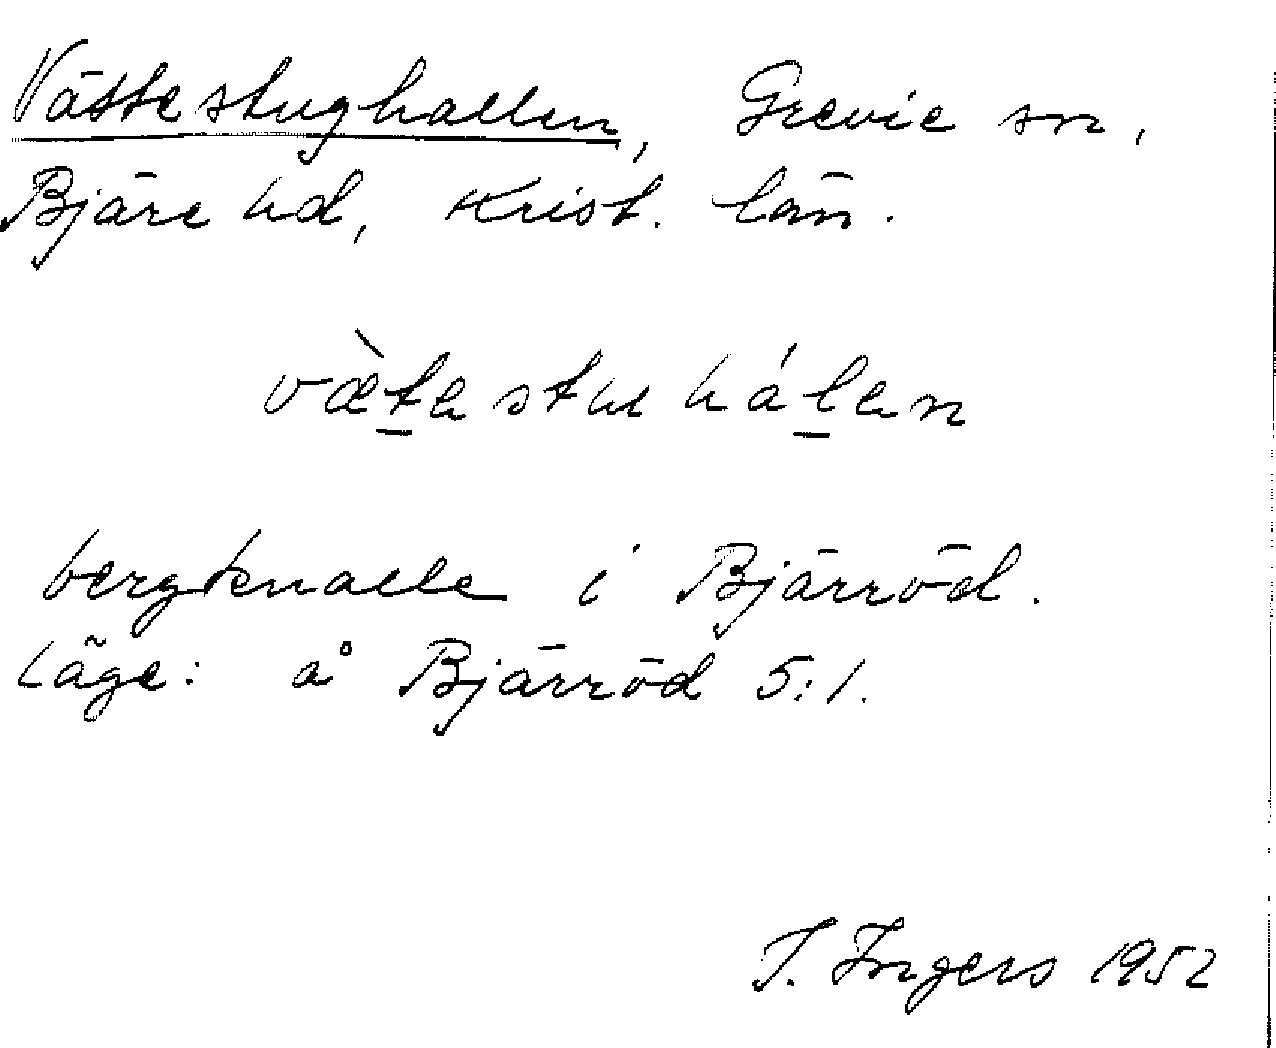 Vättestughallen, Grevie sn,
Bjäre hd, Krist. län.
væ̀testuhálen
bergknalle i Bjärröd.
Läge: å Bjärröd 5:1.
I. Ingers 1952